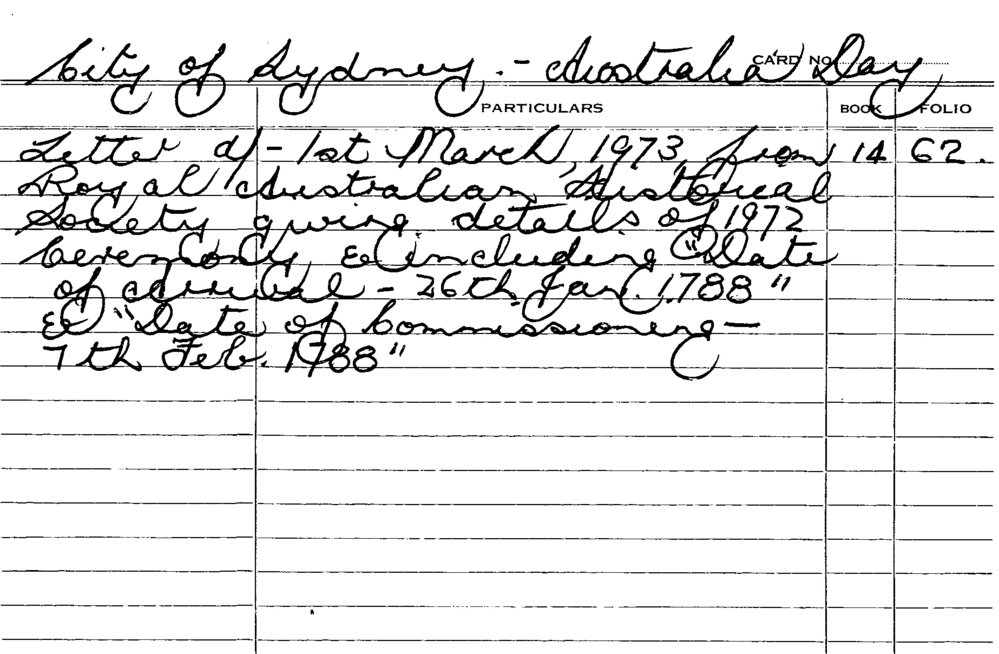 City of Sydney. - Australia Day
CARD NO.
PARTICULARS BOOK FOLIO
Letter d/- 1st March, 1973, from 14 62.
Royal Australian Historical
Society giving details of 1972
Ceremony, & including "Date
of arrival - 26th Jan. 1788"
& "Date of Commissioning -
7th Feb. 1788"